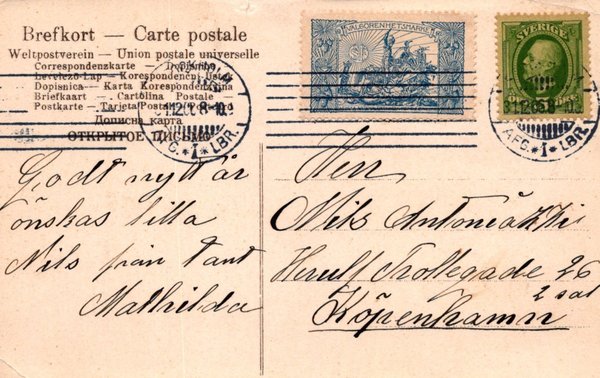 Brefkort — Carte postale
Weltpostverein — Union postale universelle
Correspondenzkarte —
Levelező-Lap — Korespondenční lístek
Dopisnica — Karta Korespondencyjna
Briefkaart — Cartolina Postale
Postkarte — Tarjeta Postal —
Дописна карта
ОТКРЫТОЕ ПИСЬМО
VÄLGÖRENHETSMÄRKE
SVERIGE
AFG. *1* LBR.
AFG. *1* LBR.
Godt nytt år
önskas lilla
Nils från tant
Mathilda
Herr
Nils
Herluf Trollegade 26
2 sal
Köpenhamn